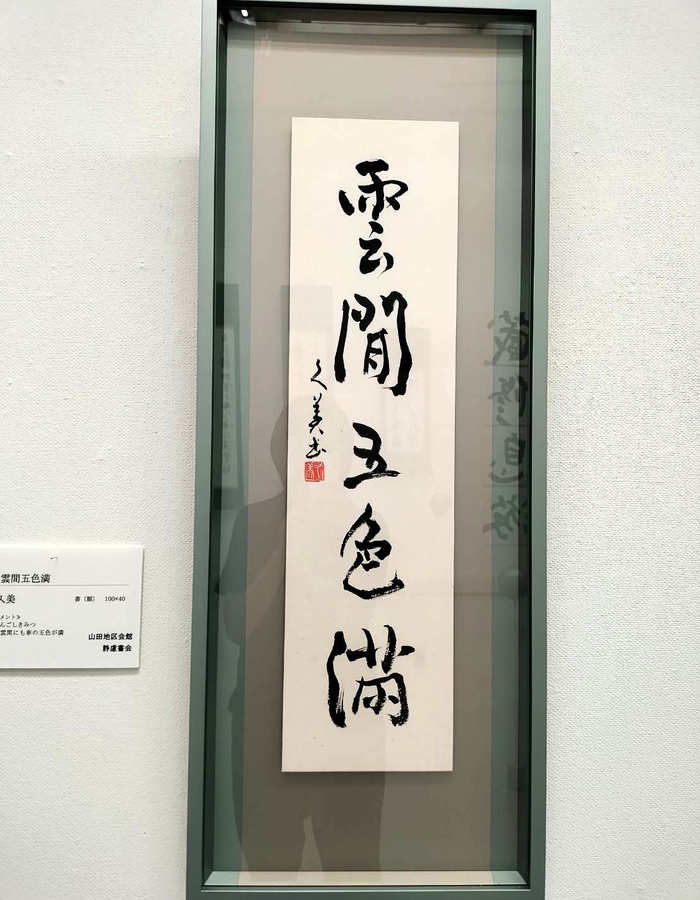 雲間五色満
久美書
雲間五色満
久美
書(額) 100×40
メント≫
んごしきみつ
雲間にも春の五色が満
山田地区会館
静慮書会
蔵修息游